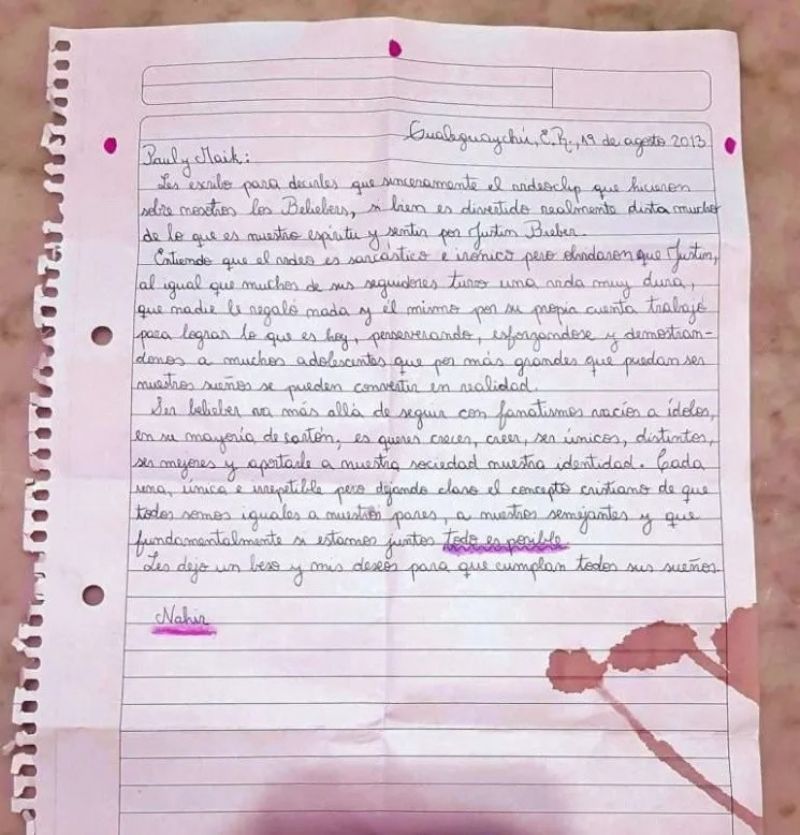 Gualeguaychú, E.R., 19 de agosto 2013
Paul y Maik:
Les escribo para decirles que sinceramente el videoclip que hicieron
sobre nosotros los Beliebers, si bien es divertido realmente dista mucho
de lo que es nuestro espíritu y sentir por Justin Bieber.
Entiendo que el video es sarcástico e irónico pero olvidaron que Justin,
al igual que muchos de sus seguidores tuvo una vida muy dura,
que nadie le regaló nada y él mismo por su propia cuenta trabajó
para lograr lo que es hoy, perseverando, esforzándose y demostran-
donos a muchos adolescentes que por más grandes que puedan ser
nuestros sueños se pueden convertir en realidad.
Ser belieber va más allá de seguir con fanatismos vacíos a ídolos,
en su mayoría de cartón, es querer crecer, creer, ser únicos, distintos,
ser mejores y aportarle a nuestra sociedad nuestra identidad. Cada
una, única e irrepetible pero dejando claro el concepto cristiano de que
todos somos iguales a nuestros pares, a nuestros semejantes y que
fundamentalmente si estamos juntos todo es posible.
Les dejo un beso y mis deseos para que cumplan todos sus sueños.
Nahir